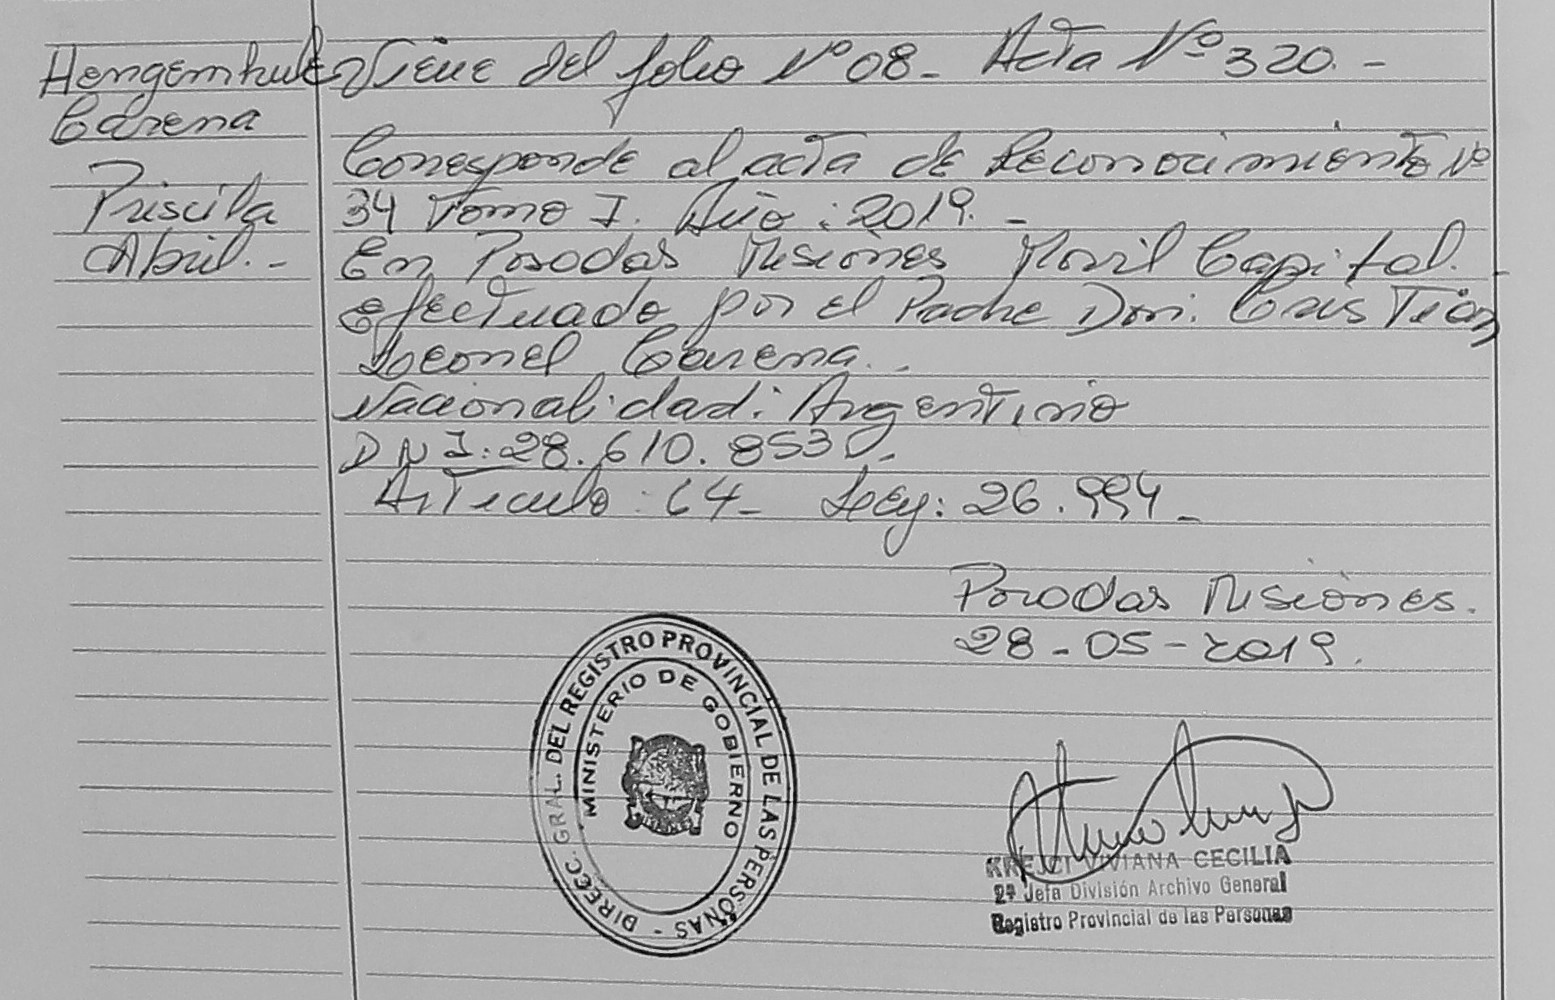 Hengemhule
Carena
Priscila
Abril.-
Viene del folio N° 08_ Acta N° 320.-
Corresponde al acta de Reconocimiento N°
34 Tomo I. Año: 2019._
En Posadas Misiones Movil Capital.
efectuado por el Padre Don: Cristian
Leonel Carena..
Nacionalidad: Argentino
DNI: 28.610.853
Articulo: 64_ Ley: 26.994_
Posadas Misiones.
28-05-2019.
DIRECC. GRAL. DEL REGISTRO PROVINCIAL DE LAS PERSONAS -
MINISTERIO DE GOBIERNO
KREJCI VIVIANA CECILIA
2ª Jefa División Archivo General
Registro Provincial de las Personas